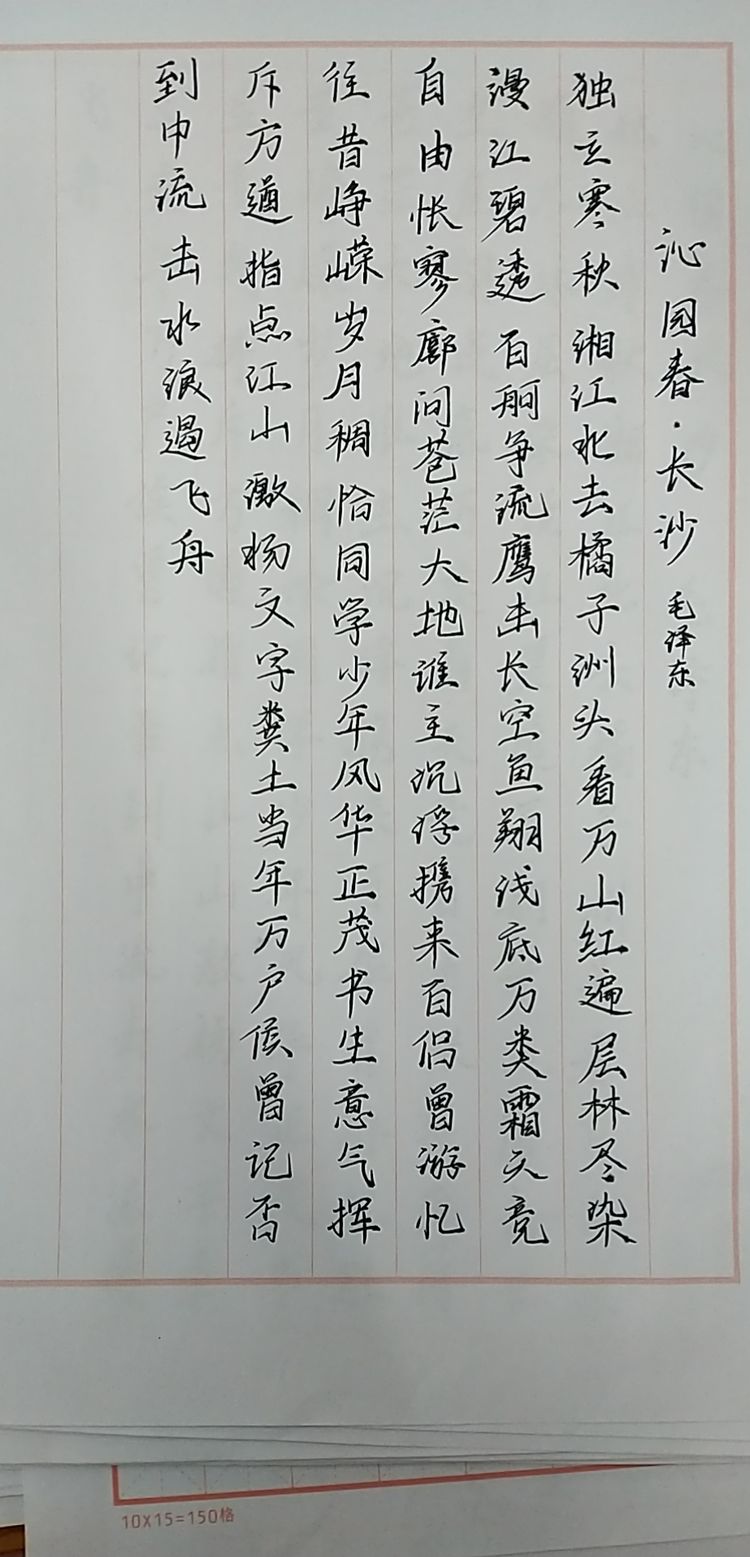 沁园春·长沙 毛泽东
独立寒秋湘江北去橘子洲头看万山红遍层林尽染
漫江碧透百舸争流鹰击长空鱼翔浅底万类霜天竞
自由怅寥廓问苍茫大地谁主沉浮携来百侣曾游忆
往昔峥嵘岁月稠恰同学少年风华正茂书生意气挥
斥方遒指点江山激扬文字粪土当年万户侯曾记否
到中流击水浪遏飞舟
10X15=150格